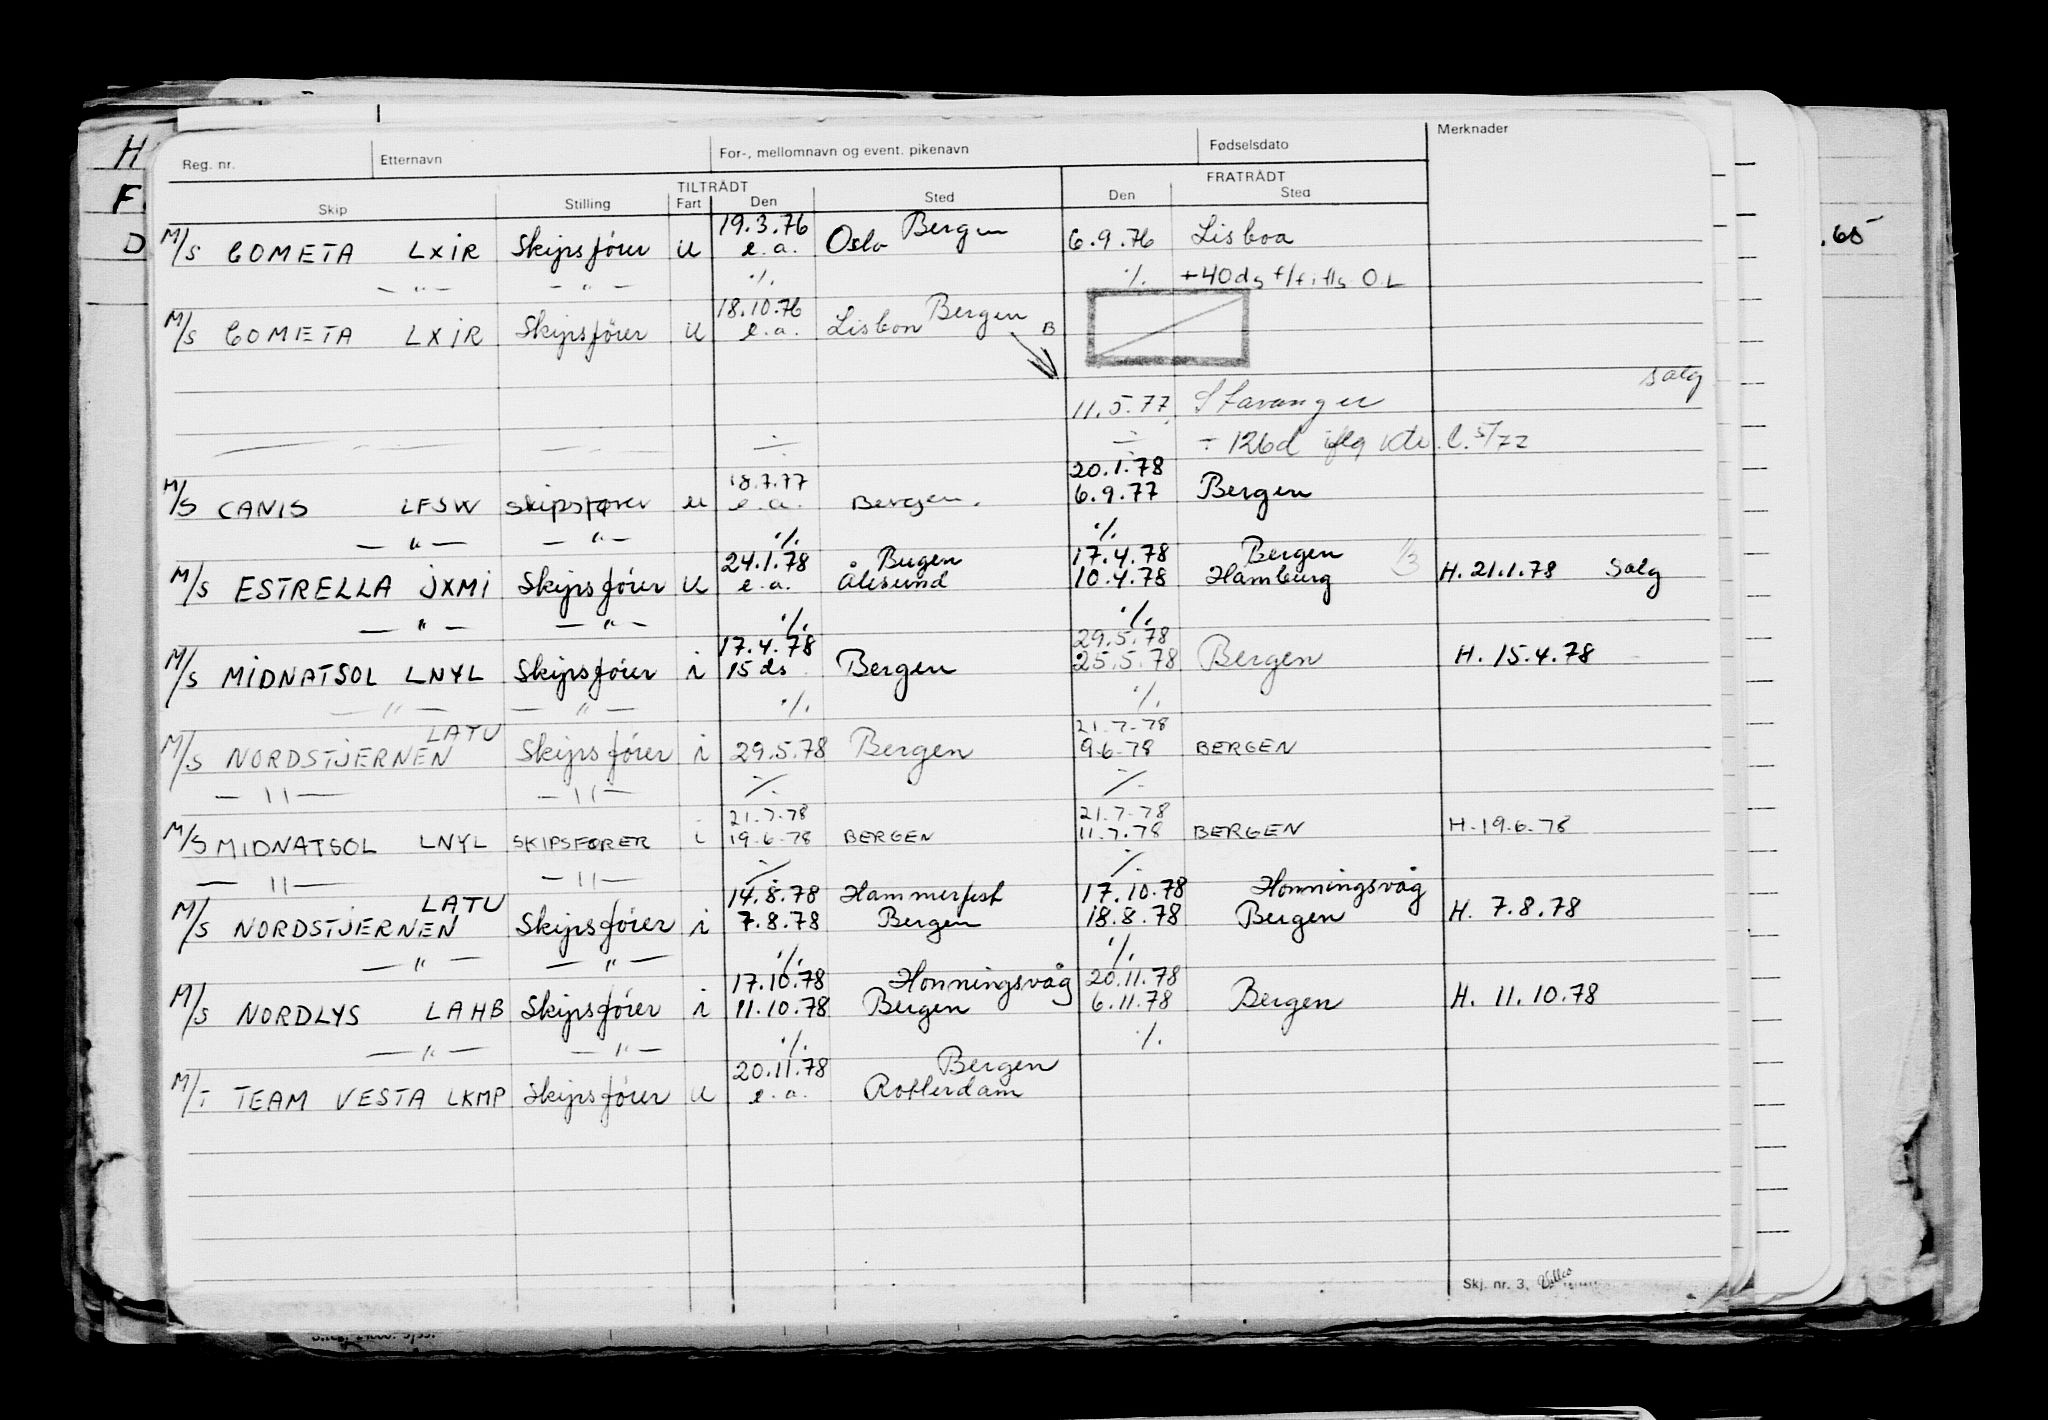 H
F
D
.65
Reg. nr. Etternavn For-, mellomnavn og event. pikenavn Fødselsdato Merknader
TILTRÅDT FRATRÅDT
Skip Stilling Fart Den Sted Den Sted
19.3.76 Bergen
M/S COMETA LXIR Skipsfører U e.a. Oslo 6.9.76 Lisboa
— " — — " — ./. ./. +40ds
18.10.76 Bergen
M/S COMETA LXIR Skipsfører U e.a. Lisbon B
salg
11.5.77 Stavanger
÷ 126d iflg
18.7.77 20.1.78
M/S CANIS LFSW Skipsfører U e.a. Bergen. 6.9.77 Bergen
— " — — " — ./. ./.
24.1.78 Bergen 17.4.78 Bergen 1/3
M/S ESTRELLA JXMI Skipsfører U e.a. Ålesund 10.4.78 Hamburg H. 21.1.78 Salg
— " — — " — ./. ./.
17.4.78 29.5.78
M/S MIDNATSOL LNYL Skipsfører i 15 ds Bergen 25.5.78 Bergen H. 15.4.78
— " — — " — ./. ./.
LATU 21.7.78
M/S NORDSTJERNEN Skipsfører i 29.5.78 Bergen 9.6.78 BERGEN
— " — — " — ./. ./.
21.7.78 21.7.78
M/S MIDNATSOL LNYL SKIPSFØRER i 19.6.78 BERGEN 11.7.78 BERGEN H. 19.6.78
— " — — " — ./. ./.
LATU 14.8.78 Hammerfest 17.10.78 Honningsvåg
M/S NORDSTJERNEN Skipsfører i 7.8.78 Bergen 18.8.78 Bergen H. 7.8.78
— " — — " — ./. ./.
17.10.78 Honningsvåg 20.11.78
M/S NORDLYS LAHB Skipsfører i 11.10.78 Bergen 6.11.78 Bergen H. 11.10.78
— " — — " — ./. ./.
20.11.78 Bergen
M/T TEAM VESTA LKMP Skipsfører U e.a. Rotterdam
Skj. nr. 3.